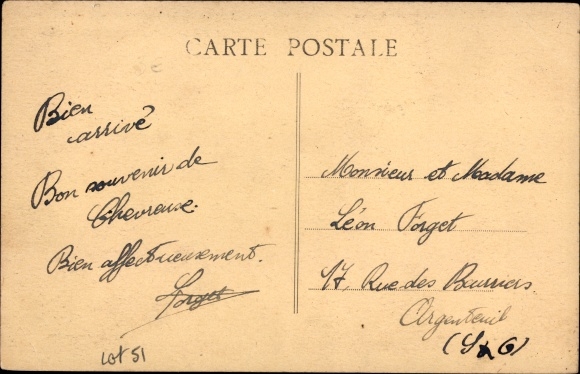 CARTE POSTALE
Bien
arrivé
Bon souvenir de
Chevreuse.
Bien affectueusement.
Forget
Lot 51
Monsieur et Madame
Léon Forget
17, Rue des Burriers
Argenteuil
(S & O)